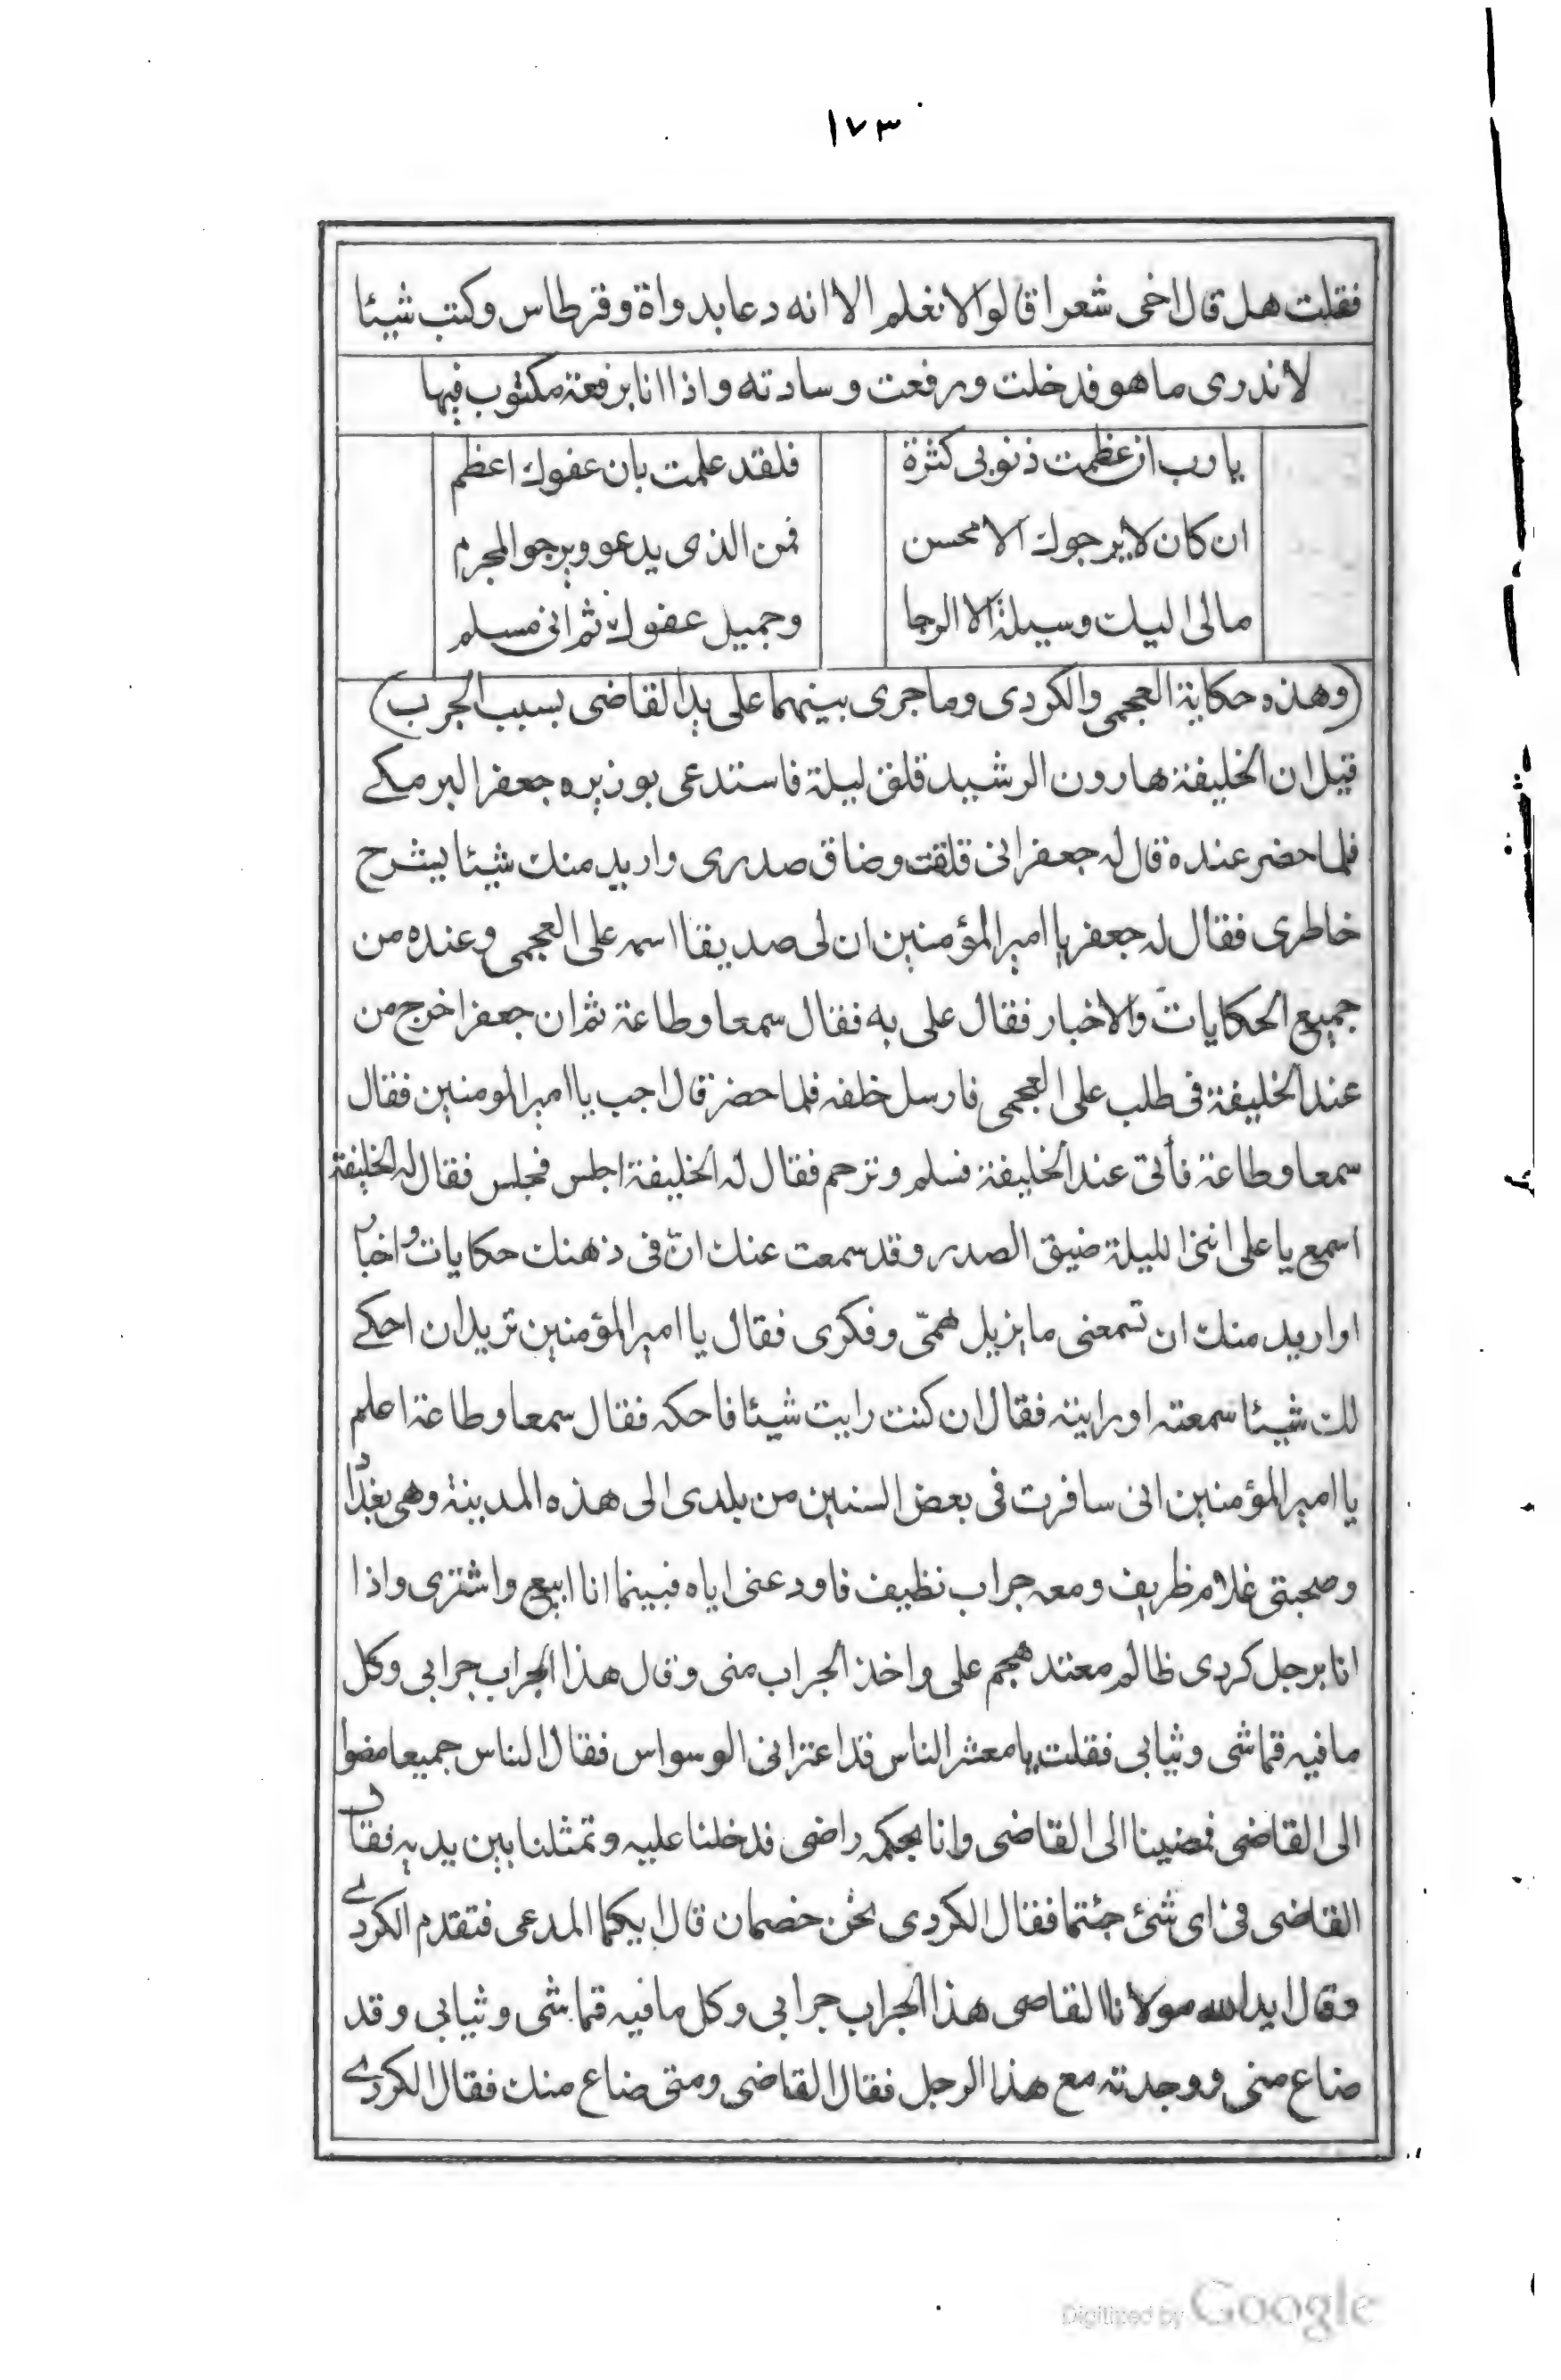 ١٧٣
فقلت هل قال اخى شعرا قالوا لا نعلم الا انه دعا بدواة وقرطاس وكتب شيئا
لا ندرى ما هو فدخلت ورفعت وسادته واذا انا برقعة مكتوب فيها
يا رب ان عظمت ذنوبى كثرة فلقد علمت بان عفوك اعظم
ان كان لا يرجوك الا محسن فمن الذى يدعو ويرجو المجرم
مالى اليك وسيلة الا الرجا وجميل عفوك ثم انى مسلم
(وهذه حكاية العجمى والكردى وما جرى بينهما على يد القاضى بسبب الجرب)
قيل ان الخليفة هارون الرشيد قلق ليلة فاستدعى بوزيره جعفر البرمكے
فلما حضر عنده قال له جعفر انى قلقت وضاق صدرى واريد منك شيئا يشرح
خاطرى فقال له جعفر يا امير المؤمنين ان لى صديقا اسمه على العجمى وعنده من
جميع الحكايات والاخبار فقال على به فقال سمعا وطاعة ثم ان جعفر اخرج من
عند الخليفة فى طلب على العجمى فارسل خلفه فلما حضر قال اجب يا امير المومنين فقال
سمعا وطاعة فأتى عند الخليفة فسلم وترحم فقال له الخليفة اجلس فجلس فقال له الخليفة
اسمع يا على اننى الليلة ضيق الصدر وقد سمعت عنك انّ فى ذهنك حكايات واخبار
اواريد منك ان تسمعنى ما يزيل همّى وفكرى فقال يا امير المؤمنين تريد ان احكے
لك شيئا سمعته او راينه فقال ان كنت رايت شيئا فاحكه فقال سمعا وطاعة اعلم
يا امير المؤمنين انى سافرت فى بعض السنين من بلدى الى هذه المدينة وهى بغداد
وصحبتى غلام ظريف ومعه جراب نظيف فاودعنى اياه فبينما انا ابيع واشترى واذا
انا برجل كردى ظالم معتد هجم على واخذ الجراب منى وقال هذا الجراب جرابى وكل
ما فيه قماشى وثيابى فقلت يا معشر الناس قد اعترانى الوسواس فقال الناس جميعا امضوا
الى القاضى فمضينا الى القاضى وانا بحكمه راضى فدخلنا عليه وتمثلنا بين يديه فقال
القاضى فى اى شئ جئتما فقال الكردى نحن خصمان قال ايكما المدعى فتقدم الكردے
وقال ايد الله مولانا القاضى هذا الجراب جرابى وكل ما فيه قماشى وثيابى وقد
ضاع منى ووجدته مع هذا الرجل فقال القاضى ومتى ضاع منك فقال الكردے
Digitized by Google